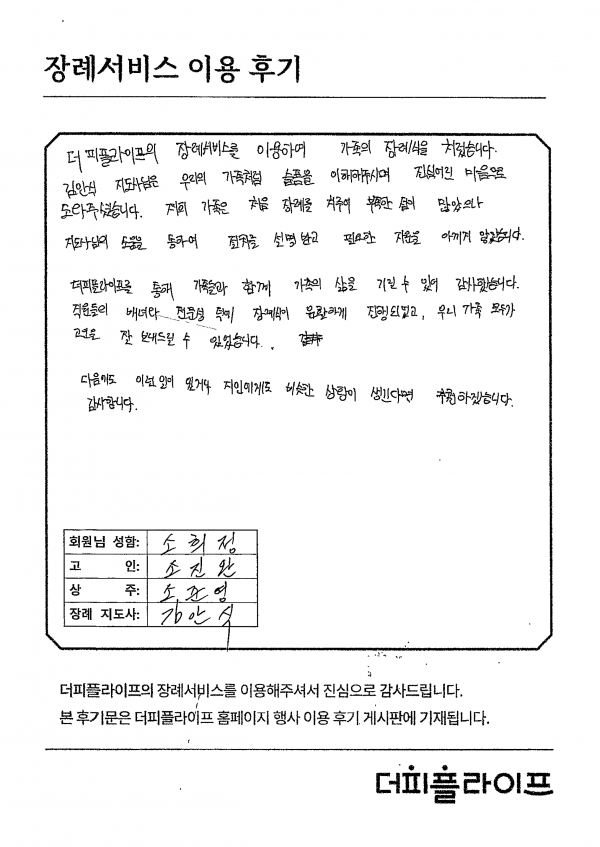 장례서비스 이용 후기
더 피플라이프의 장례서비스를 이용하여 가족의 장례식을 치렀습니다.
김안식 지도사님은 우리의 가족처럼 슬픔을 이해해주시며 진심어린 마음으로
도와주셨습니다. 저희 가족은 처음 장례를 치루어 부족한 점이 많았으나
지도사님의 도움을 통하여 절차를 설명 받고 필요한 지원을 아낌없이 받았습니다.
더피플라이프를 통해 가족들과 함께 가족의 삶을 기릴 수 있어 감사했습니다.
직원들의 배려와 전문성 덕에 장례식이 원활하게 진행되었고, 우리 가족 모두가
고인을 잘 보내드릴 수 있었습니다.
다음에도 이런 일이 있거나 지인에게도 비슷한 상황이 생긴다면 추천하겠습니다.
감사합니다.
회원님 성함: 소희정
고 인: 소진완
상 주: 소준영
장례 지도사: 김안식
더피플라이프의 장례서비스를 이용해주셔서 진심으로 감사드립니다.
본 후기문은 더피플라이프 홈페이지 행사 이용 후기 게시판에 기재됩니다.
더피플라이프